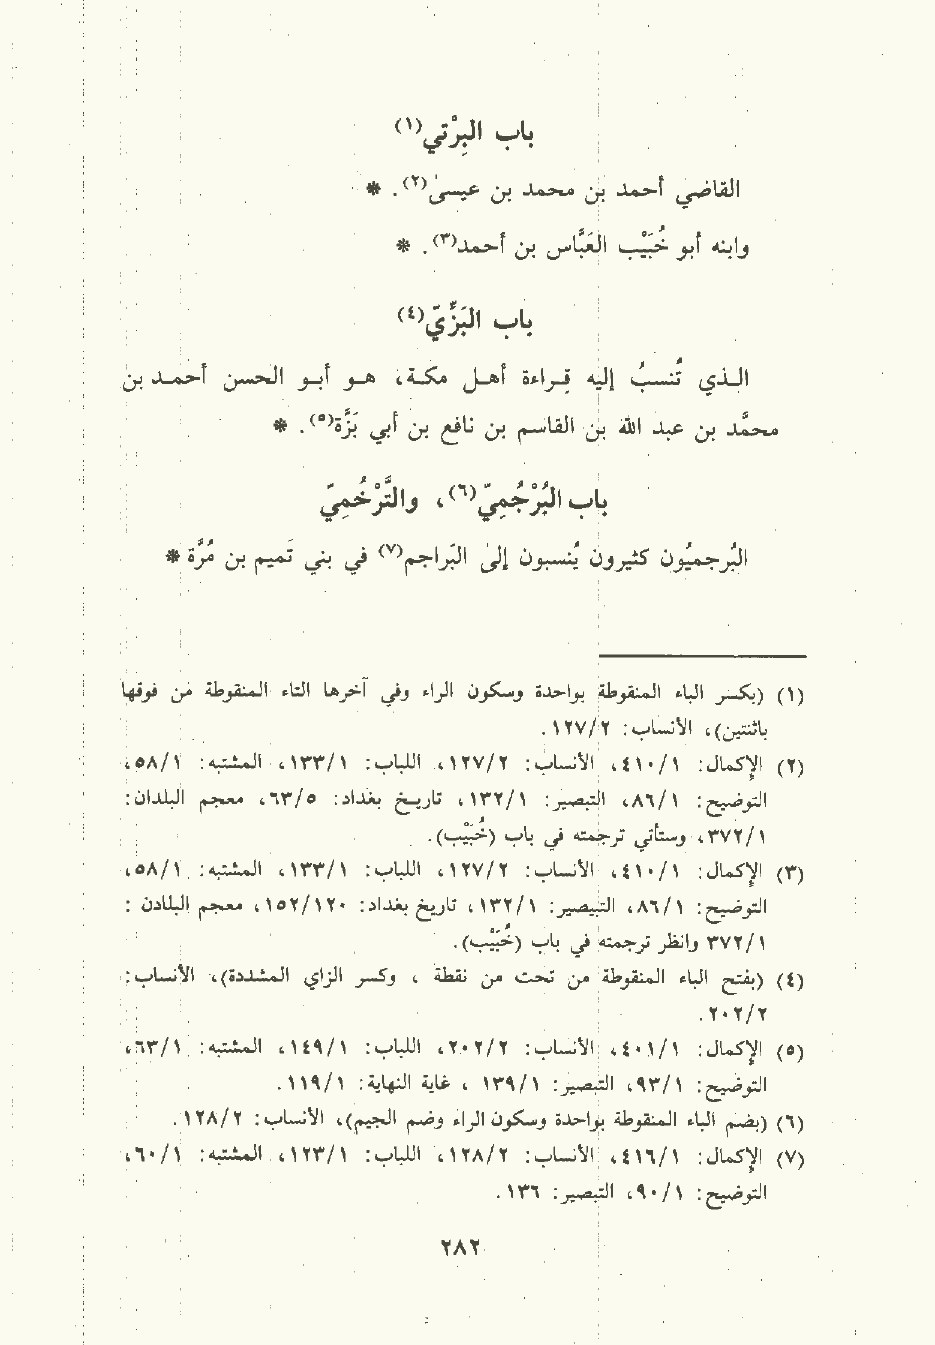 باب البِرْتي(١)
القاضي أحمد بن محمد بن عيسىٰ(٢). *
وابنه أبو خُبَيْب العَبَّاس بن أحمد(٣). *
باب البَزِّيّ(٤)
الـذي تُنسبُ إليه قِـراءة أهـل مكـة، هـو أبـو الحسن أحمـد بن
محمَّد بن عبد الله بن القاسم بن نافع بن أبي بَزَّة(٥). *
باب البُرْجُمِيّ(٦)، والتَّرْخُمِيّ
البُرجميُون كثيرون يُنسبون إلىٰ البَراجم(٧) في بني تَميم بن مُرَّة *
(١) (بكسر الباء المنقوطة بواحدة وسكون الراء وفي آخرها التاء المنقوطة من فوقها
باثنتين)، الأنساب: ١٢٧/٢.
(٢) الإكمال: ٤١٠/١، الأنساب: ١٢٧/٢، اللباب: ١٣٣/١، المشتبه: ٥٨/١،
التوضيح: ٨٦/١، التبصير: ١٣٢/١، تاريخ بغداد: ٦٣/٥، معجم البلدان:
٣٧٢/١، وستأتي ترجمته في باب (خُبَيْب).
(٣) الإكمال: ٤١٠/١، الأنساب: ١٢٧/٢، اللباب: ١٣٣/١، المشتبه: ٥٨/١،
التوضيح: ٨٦/١، التبيصير: ١٣٢/١، تاريخ بغداد: ١٥٢/١٢٠، معجم البلادن :
٣٧٢/١ وانظر ترجمته في باب (خُبَيْب).
(٤) (بفتح الباء المنقوطة من تحت من نقطة ، وكسر الزاي المشددة)، الأنساب:
٢٠٢/٢.
(٥) الإكمال: ٤٠١/١، الأنساب: ٢٠٢/٢، اللباب: ١٤٩/١، المشتبه: ٦٣/١،
التوضيح: ٩٣/١، التبصير: ١٣٩/١ ، غاية النهاية: ١١٩/١.
(٦) (بضم الباء المنقوطة بواحدة وسكون الراء وضم الجيم)، الأنساب: ١٢٨/٢.
(٧) الإكمال: ٤١٦/١، الأنساب: ١٢٨/٢، اللباب: ١٢٣/١، المشتبه: ٦٠/١،
التوضيح: ٩٠/١، التبصير: ١٣٦.
٢٨٢